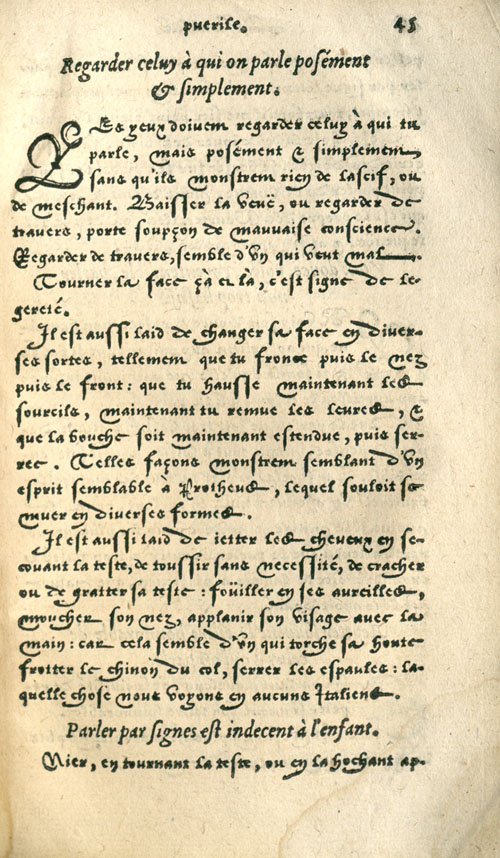 puerile. 45
Regarder celuy à qui on parle posément
& simplement.
LEs yeux doivent regarder celuy à qui tu
parle, mais posément & simplement,
sans qu'ils monstrent rien de lascif, ou
de meschant. Baisser la veuë, ou regarder de
travers, porte soupçon de mauvaise conscience.
Regarder de travers, semble d'vn qui veut mal.
Tourner la face çà et là, c'est signe de le-
gereté.
Il est aussi laid de changer sa face en diver-
ses sortes, tellement que tu fronce puis le nez
puis le front: que tu hausse maintenant les
sourcils, maintenant tu remue les leures, &
que la bouche soit maintenant estendue, puis ser-
ree. Telles façons monstrent semblant d'vn
esprit semblable à Protheus, lequel souloit se
muer en diverses formes.
Il est aussi laid de ietter les cheveux en se-
couant la teste, de toussir sans necessité, de cracher
ou de gratter sa teste: foüiller en ses aureilles,
moucher son nez, applanir son visage avec la
main: car cela semble d'vn qui torche sa honte
frotter le chinon du col, serrer les espaules: la-
quelle chose nous voyons en aucuns Italiens.
Parler par signes est indecent à l'enfant.
Nier, en tournant la teste, ou en la hochant ap-